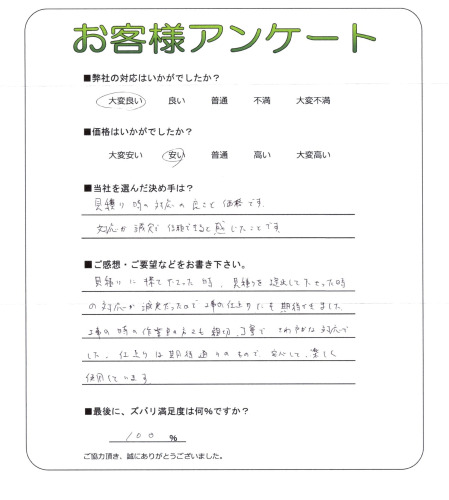 お客様アンケート
■弊社の対応はいかがでしたか？
大変良い 良い 普通 不満 大変不満
■価格はいかがでしたか？
大変安い 安い 普通 高い 大変高い
■当社を選んだ決め手は？
見積り時の対応の良さと価格です
対応が誠実で信頼できると感じたことです
■ご感想・ご要望などをお書き下さい。
見積りに来て下さった時、見積りを提出して下さった時
の対応が誠実だったので工事の仕上りにも期待できました
工事の時の作業員の方も親切、丁寧でさわやかな対応で
した。仕上りは期待通りのもので、安心して、楽しく
使用しています
■最後に、ズバリ満足度は何%ですか？
100 %
ご協力頂き、誠にありがとうございました。